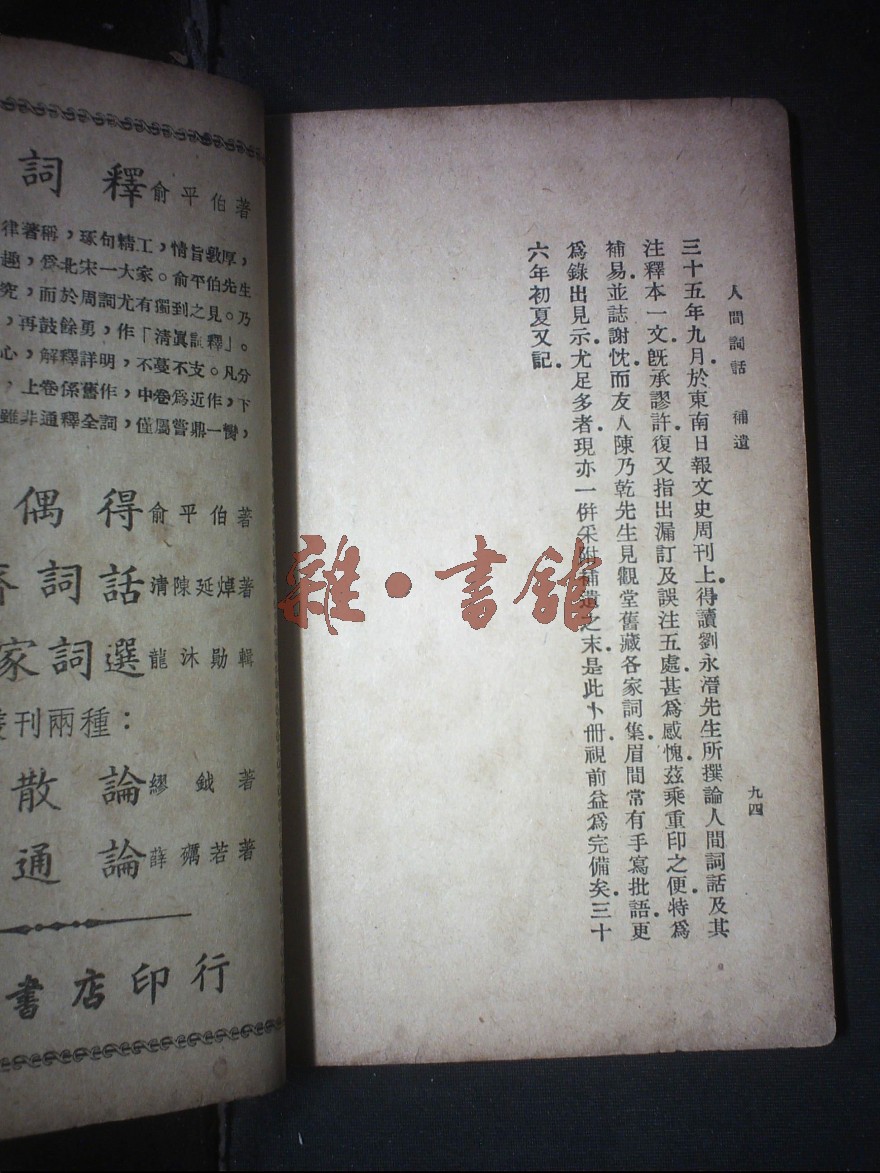 人間詞話 補遺
九四
三十五年九月於東南日報文史周刊上得讀劉永濟先生所撰論人間詞話及其
注釋本一文旣承謬許復又指出漏訂及誤注五處甚爲感愧茲乘重印之便特爲
補易並誌謝忱而友人陳乃乾先生見觀堂舊藏各家詞集眉間常有手寫批語更
爲錄出見示尤足多者現亦一倂采附補遺之末是此小冊視前益爲完備矣三十
六年初夏又記
雜·書館
詞釋 俞平伯著
律著稱,琢句精工,情旨敦厚,
趣,爲北宋一大家。俞平伯先生
究,而於周詞尤有獨到之見。乃
,再鼓餘勇,作「清眞詞釋」。
心,解釋詳明,不蔓不支。凡分
,上卷係舊作,中卷爲近作,下
雖非通釋全詞,僅屬嘗鼎一臠,
偶得 俞平伯著
詞話 清陳廷焯著
家詞選 龍沐勛輯
叢刊兩種:
散論 繆鉞著
通論 薛礪若著
書店印行